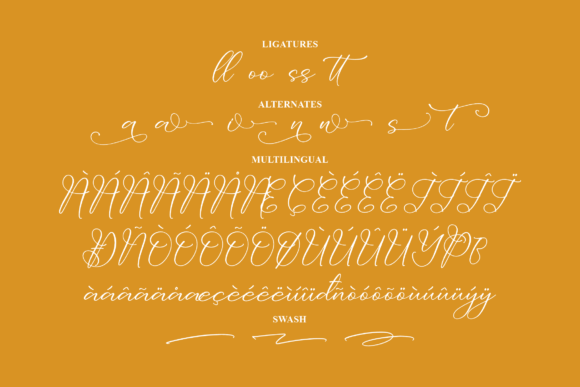 LIGATURES
ll oo ss tt
ALTERNATES
a a v n n s t
MULTILINGUAL
ÀÁÂÃÄÅÆÇÈÉÊËÌÍÎÏ
ÐÑÒÓÔÕÖØÙÚÛÜÝÞß
àáâãäåæçèéêëìíîïđñòóôõöùúûüýÿ
SWASH